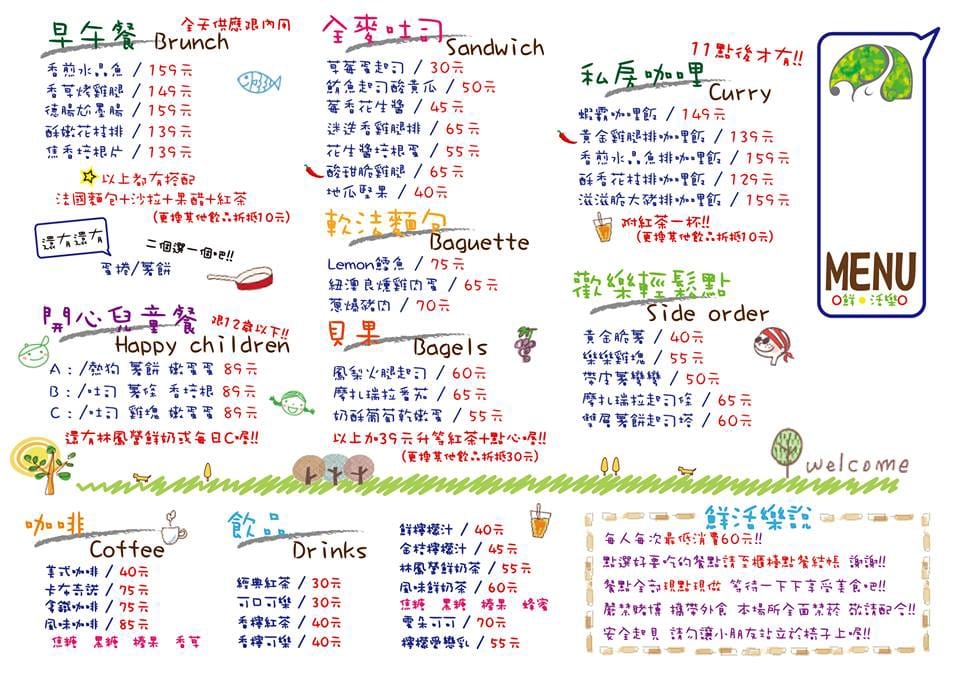 早午餐 Brunch
全天供應限內用
香煎水晶魚 / 159元
香草烤雞腿 / 149元
德腸尬墨腸 / 159元
酥嫩花枝排 / 139元
焦香培根片 / 139元
以上都有搭配
法國麵包+沙拉+果醋+紅茶
(更換其他飲品折抵10元)
還有還有
二個選一個吧!!
蛋捲/薯餅
開心兒童餐
限12歲以下!!
Happy children
A:/熱狗 薯餅 嫩蛋蛋 89元
B:/吐司 薯條 香培根 89元
C:/吐司 雞塊 嫩蛋蛋 89元
還有林鳳營鮮奶或每日C喔!!
全麥吐司
Sandwich
草莓蛋起司 / 30元
鮪魚起司酸黃瓜 / 50元
莓香花生醬 / 45元
迷迭香雞腿排 / 65元
花生醬培根蛋 / 55元
酸甜脆雞腿 / 65元
地瓜堅果 / 40元
軟法麵包
Baguette
Lemon鱈魚 / 75元
紐澳良燻雞肉蛋 / 65元
蔥爆豬肉 / 70元
貝果
Bagels
鳳梨火腿起司 / 60元
摩扎瑞拉番茄 / 65元
奶酥葡萄乾嫩蛋 / 55元
以上加39元升等紅茶+點心喔!!
(更換其他飲品折抵30元)
11點後才有!!
私房咖哩
Curry
蝦霸咖哩飯 / 149元
黃金雞腿排咖哩飯 / 139元
香煎水晶魚排咖哩飯 / 159元
酥香花枝排咖哩飯 / 129元
滋滋脆大豬排咖哩飯 / 159元
附紅茶一杯!!
(更換其他飲品折抵10元)
歡樂輕鬆點
Side order
黃金脆薯 / 40元
樂樂雞塊 / 55元
帶皮薯彎彎 / 50元
摩扎瑞拉起司條 / 65元
雙層薯餅起司塔 / 60元
MENU
鮮 活樂
welcome
咖啡
Coffee
美式咖啡 / 40元
卡布奇諾 / 75元
拿鐵咖啡 / 75元
風味咖啡 / 85元
焦糖 黑糖 榛果 香草
飲品
Drinks
經典紅茶 / 30元
可口可樂 / 30元
香檸紅茶 / 40元
香檸可樂 / 40元
鮮檸檬汁 / 40元
金桔檸檬汁 / 45元
林鳳營鮮奶茶 / 55元
風味鮮奶茶 / 60元
焦糖 黑糖 榛果 蜂蜜
雲朵可可 / 70元
檸檬愛戀乳 / 55元
鮮活樂說
每人每次最低消費60元!!
點選好要吃的餐點請至櫃檯點餐結帳 謝謝!!
餐點全部現點現做 等待一下下享受美食吧!!
嚴禁賭博 攜帶外食 本場所全面禁菸 敬請配合!!
安全起見 請勿讓小朋友站立於椅子上喔!!